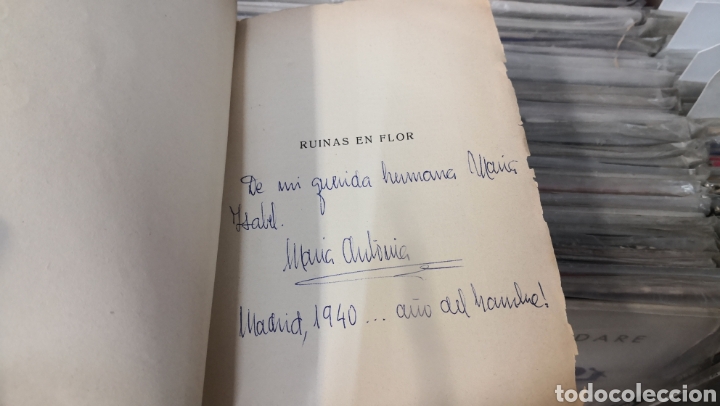 RUINAS EN FLOR
De mi querida hermana Maria
Isabel.
Maria Antonia
Madrid, 1940 ... año del hambre!
DARE
todocoleccion